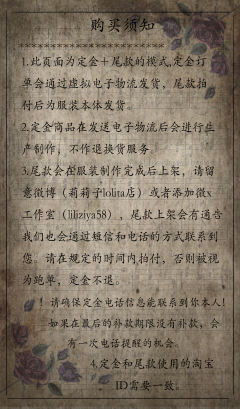 购买须知
********************
1.此页面为定金＋尾款的模式,定金订
单会通过虚拟电子物流发货，尾款拍
付后为服装本体发货。
2.定金商品在发送电子物流后会进行生
产制作，不作退换货服务。
3.尾款会在服装制作完成后上架，请留
意微博（莉莉子lolita店）或者添加微x
工作室（liliziya58），尾款上架会有通告
我们也会通过短信和电话的方式联系到
您。请在规定的时间内拍付，否则被视
为跑单，定金不退。
！请确保定金电话信息能联系到你本人！
如果在最后的补款期限没有补款，会
有一次电话提醒的机会。
4.定金和尾款使用的淘宝
ID需要一致。